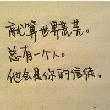 前尘算世界荒芜。
总有一个人。
他会是你的信徒。